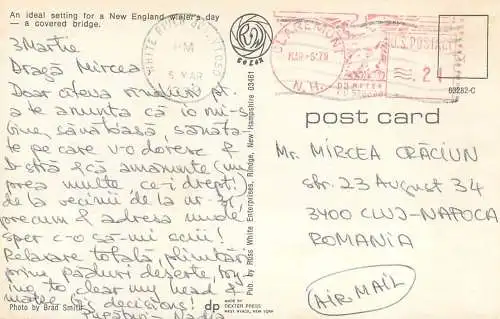 An ideal setting for a New England winter's day
— a covered bridge.
3 Martie
Dragă Mircea
Doar câteva rînduri pt.
a te anunța că io mi-s
bine, sănătoasă, sănăta-
te pe care v-o doresc &
D-stră & că amănunte (nu
prea multe ce-i drept!)
de la vecinii de la nr. 36
precum & adresa unde
sper c-o să-mi scrii!
Relaxare totală, plimbări
prin păduri deșerte, try-
ing to clear my head &
make decisions!
Pupături - Nadia
Photo by Brad Smith
Pub. by Ross White Enterprises, Rindge, New Hampshire 03461
WHITE RIVER JCT VT 050
PM
5 MAR
CLAREMONT
MAR-5'79
N.H.
U.S. POSTAGE
PB METER
63282-C
post card
Mr. MIRCEA CRĂCIUN
str. 23 August 34
3400 CLUJ-NAPOCA
ROMANIA
AIR MAIL
dp
MADE BY
DEXTER PRESS
WEST NYACK, NEW YORK